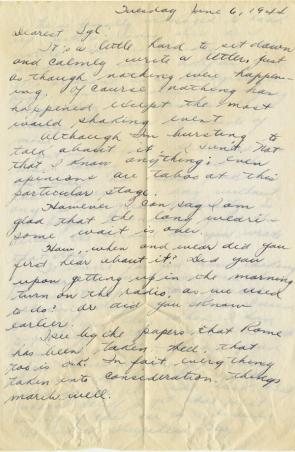 Tuesday June 6, 1944
Dearest Sgt.
It's a little hard to sit down
and calmly write a letter, just
as though nothing were happen-
ing. Of course nothing has
happened except the most
world shaking event
Although I'm bursting to
talk about it I Not
that I know anything; even
opinions are taboo at this
particular stage.
However I can say I am
glad that the long weari-
some wait is over.
How, when and wear did you
first hear about it? Did you
upon getting up in the morning
turn on the radio, as we used
to do? Or did you know
earlier.
I see by the papers that Rome
has been taken. Well, that
too is In fact, everything
taken into consideration, things
march well.